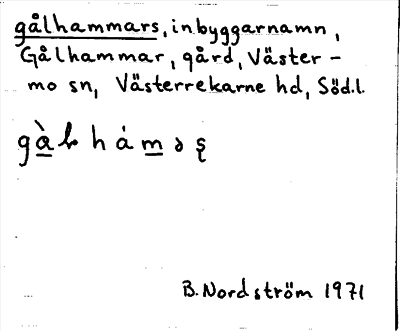 gålhammars, inbyggarnamn,
Gålhammar, gård, Väster-
mo sn, Västerrekarne hd, Söd.l.
B. Nordström 1971